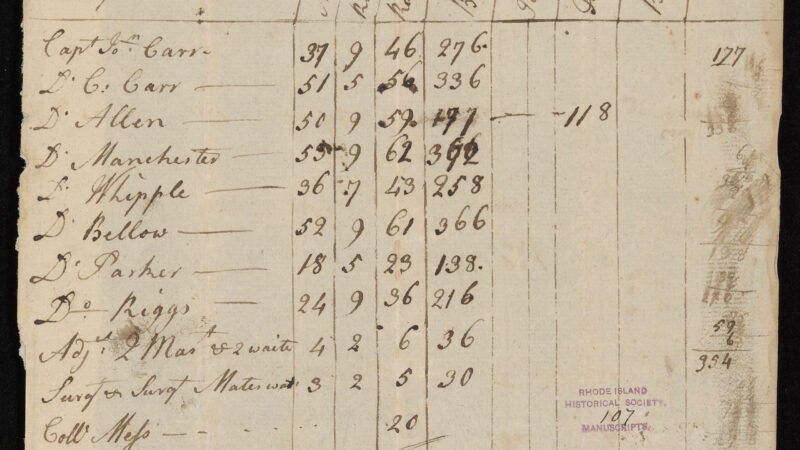 Capt Jos Carr 37 9 46 276 177
Do C: Carr 51 5 56 336
Do Allen 50 9 59 177 118
Do Manchester 53 9 62
Do Whipple 36 7 43 258
Do Bellow 52 9 61 366
Do Parker 18 5 23 138
Do Riggs 24 9 36 216
Adjt 2 Mast & 2 waits 4 2 6 36 59 6
354
Surgt & Surgt Mates 3 2 5 30
RHODE ISLAND
HISTORICAL SOCIETY.
107
MANUSCRIPTS.
Coll Mess 20